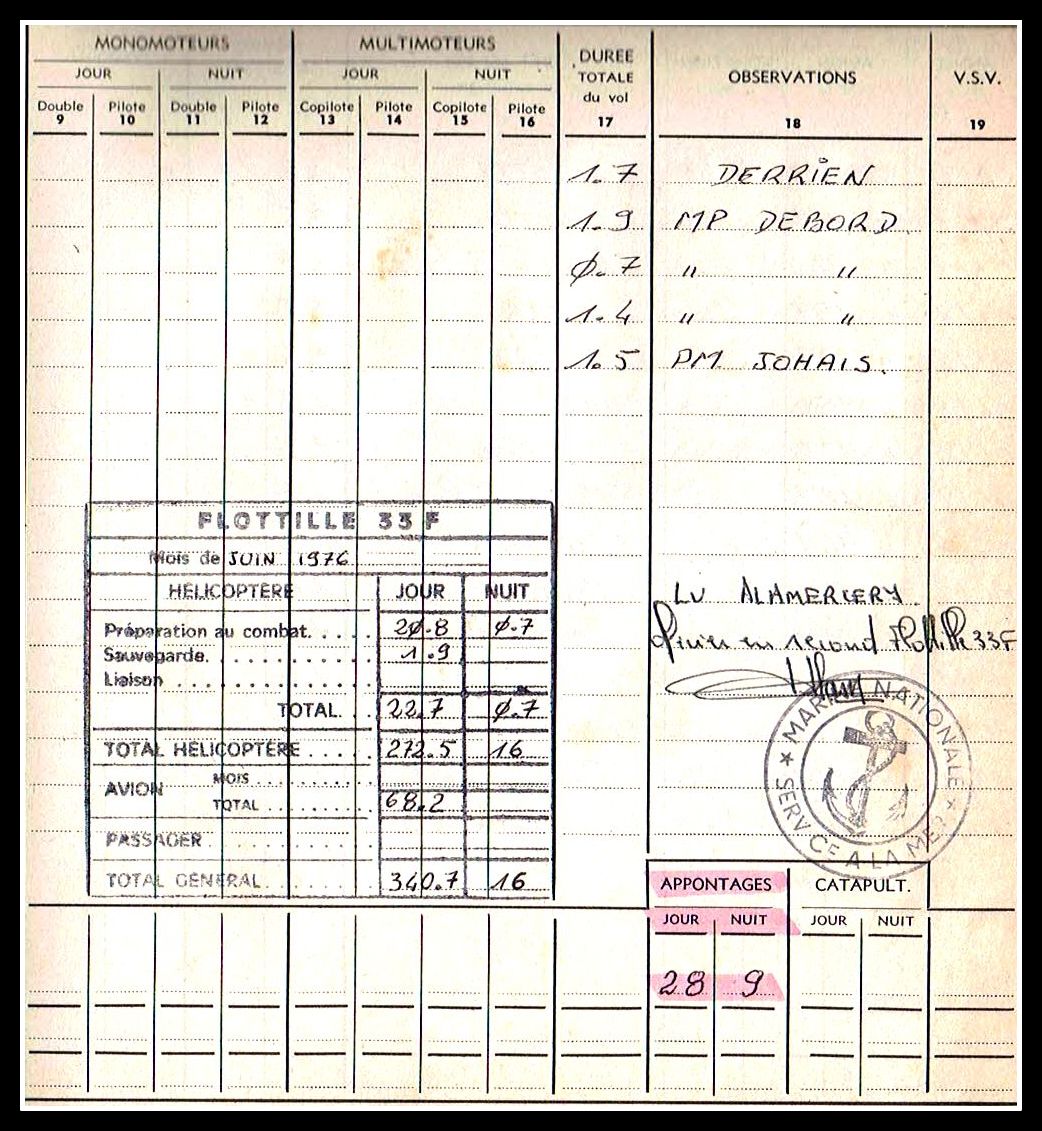 MONOMOTEURS MULTIMOTEURS DURÉE TOTALE du vol OBSERVATIONS V.S.V.
JOUR NUIT JOUR NUIT
Double Pilote Double Pilote Copilote Pilote Copilote Pilote
9 10 11 12 13 14 15 16 17 18 19
1.7 DERRIEN
1.9 MP DEBORD
0.7 " "
1.4 " "
1.5 PM JOHAIS.
FLOTTILLE 33 F
Mois de JUIN 1976
HÉLICOPTÈRE JOUR NUIT
Préparation au combat. . . . . 20.8 0.7
Sauvegarde. . . . . . . . . . . . 1.9
Liaison . . . . . . . . . . . . . .
TOTAL. . . 22.7 0.7
TOTAL HÉLICOPTÈRE . . . . . 272.5 16
AVION MOIS . . . . . . . . .
TOTAL . . . . . . . . 68.2
PASSAGER . . . . . . . . . . . .
TOTAL GÉNÉRAL. . . . . . . . 340.7 16
LV ALAMERCERY.
Officier en second Flottille 33F
MARINE NATIONALE
★ SERVICE A LA MER ★
APPONTAGES CATAPULT.
JOUR NUIT JOUR NUIT
28 9